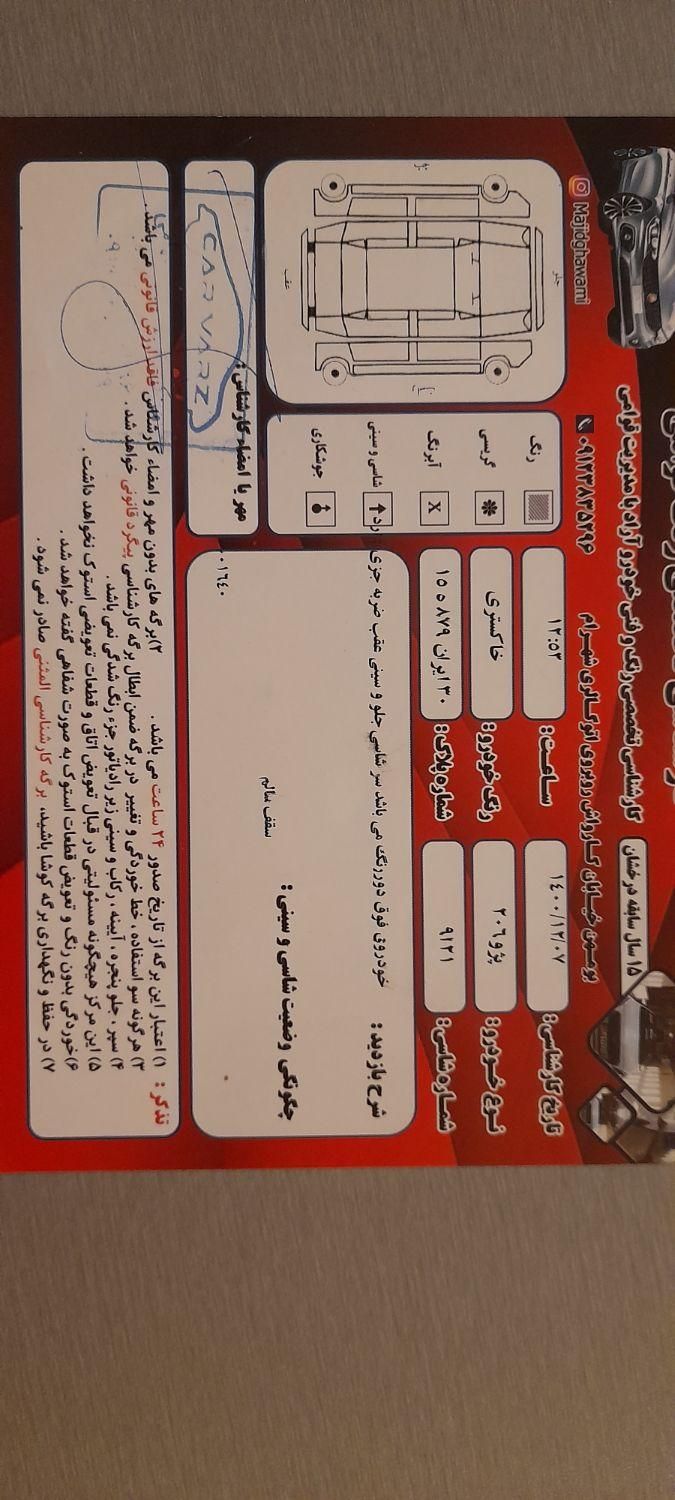 کارشناسی تخصصی رنگ و فنی خودرو آزاد با مدیریت قوامی
۱۵ سال سابقه درخشان
بومهن خیابان کارواش روبروی اتوگالری شهرام
۰۹۱۲۳۸۳۵۲۹۶
Majidghawami
تاریخ کارشناسی: ۱۴۰۰/۱۲/۰۷
ساعت: ۱۲:۵۳
نوع خودرو: پژو ۲۰۶
رنگ خودرو: خاکستری
شماره شاسی: ۹۱۲۱
شماره پلاک: ۳۰ ایران ۸۷۹ ۱۵
رنگ
گریسی
آبرنگ
X
شاسی و سینی
جوشکاری
جلو
عقب
شرح بازدید: خودروی فوق دوررنگ می باشد سر شاسی جلو و سینی عقب ضربه جزئی دارد
چگونگی وضعیت شاسی و سینی:
سقف سالم
۰۰۱۶۴۰
مهر یا امضاء کارشناس:
CARVARZ
تذکر: ۱) اعتبار این برگه از تاریخ صدور ۲۴ ساعت می باشد.
۲) برگه های بدون مهر و امضاء کارشناس فاقد ارزش قانونی می باشد.
۳) هرگونه سو استفاده، خط خوردگی و تغییر در برگه ضمن ابطال برگه کارشناسی پیگرد قانونی خواهد شد.
۴) سپر، جلو پنجره، آیینه، رکاب و سینی زیر رادیاتور جزء رنگ شدگی نمی باشد.
۵) این مرکز هیچگونه مسئولیتی در قبال تعویض اتاق و قطعات تعویضی استوک نخواهد داشت.
۶) خوردگی بدون رنگ و تعویض قطعات استوک به صورت شفاهی گفته خواهد شد.
۷) در حفظ و نگهداری برگه کوشا باشید، برگه کارشناسی المثنی صادر نمی شود.